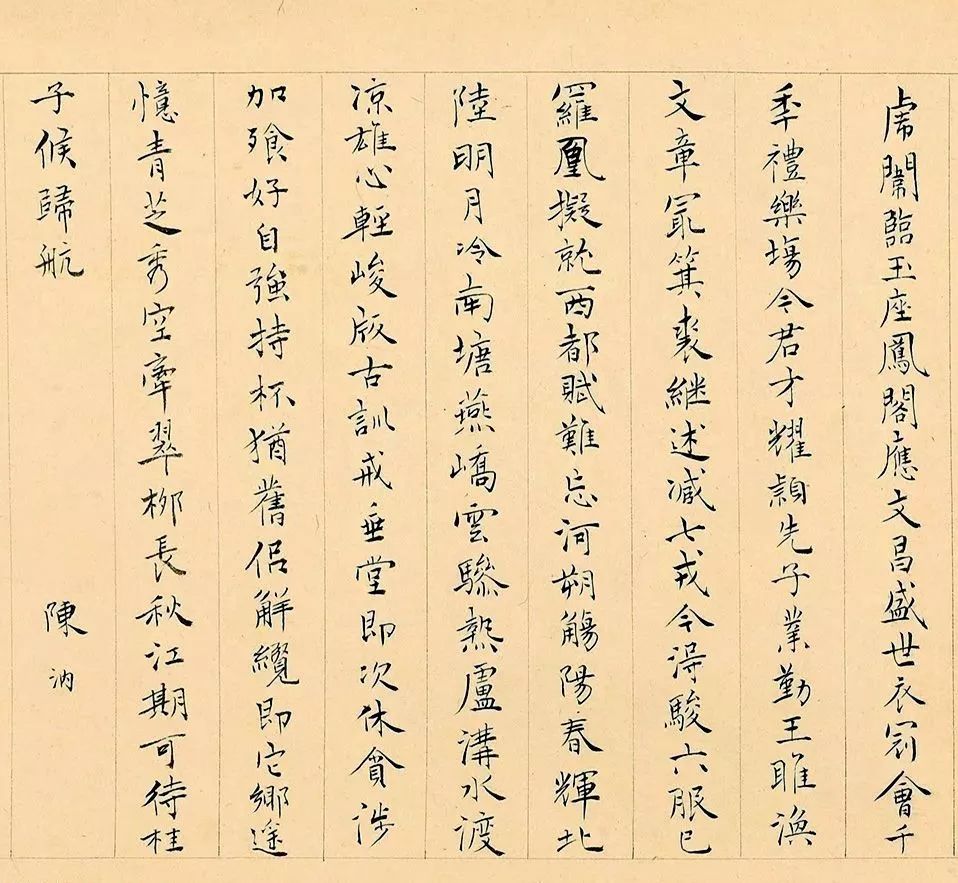 虎闈臨玉座鳳閣應文昌盛世衣冠會千
季禮樂場令君才耀穎先子業勤王睢渙
文章冣箕裘継述減七戎今淂駿六服已
羅凰擬就西都賦難忘河朔觴陽春輝北
陸明月冷南塘燕嶠雲驂熱盧溝水渡
凉雄心輕峻阪古訓戒垂堂即次休貪涉
加飱好自強持杯猶舊侶解纜即它鄉途
憶青芝秀空牽翠柳長秋江期可待桂
子候歸航
陳汭